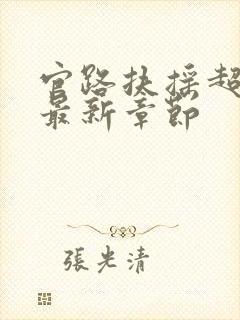 官路扶摇超
最新章節
張光清